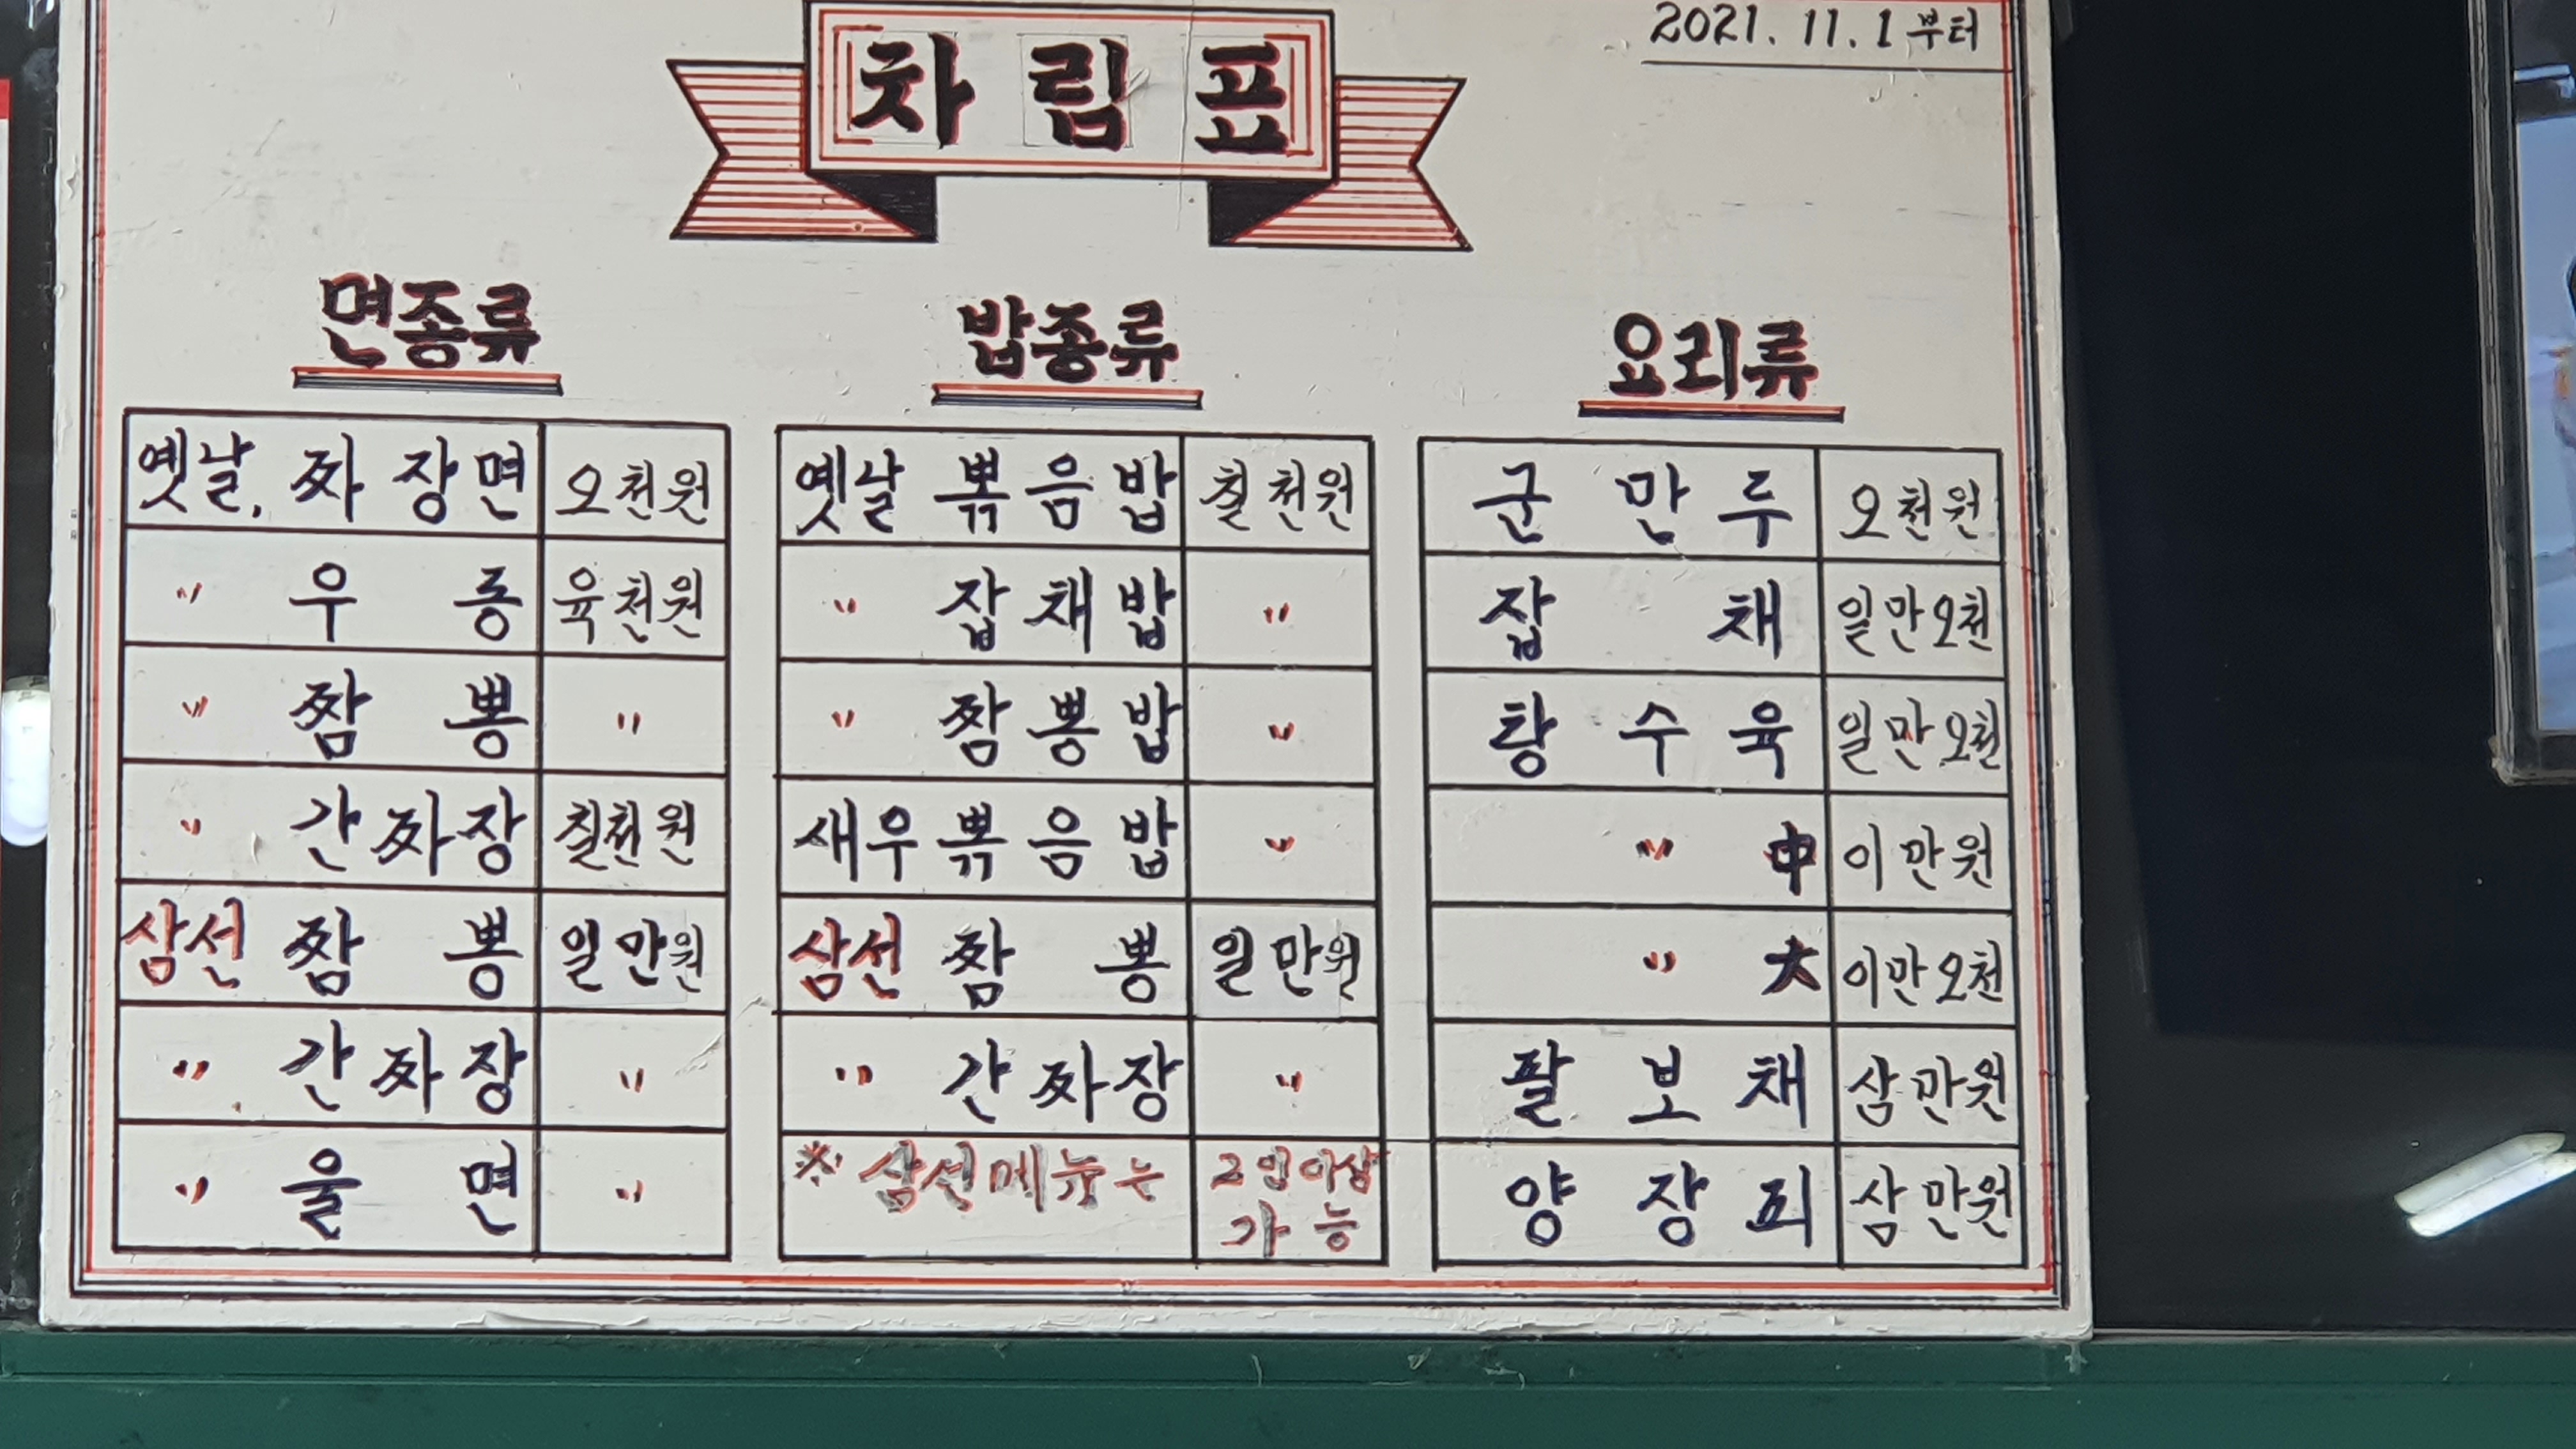 차림표
2021. 11. 1 부터
면종류
옛날, 짜장면 오천원
〃 우동 육천원
〃 짬뽕 〃
〃 간짜장 칠천원
삼선 짬뽕 일만원
〃 간짜장 〃
〃 울면 〃
밥종류
옛날 볶음밥 칠천원
〃 잡채밥 〃
〃 짬뽕밥 〃
새우볶음밥 〃
삼선 짬뽕 일만원
〃 간짜장 〃
※ 삼선메뉴는 2인이상
가능
요리류
군만두 오천원
잡채 일만오천
탕수육 일만오천
〃 中 이만원
〃 大 이만오천
팔보채 삼만원
양장피 삼만원